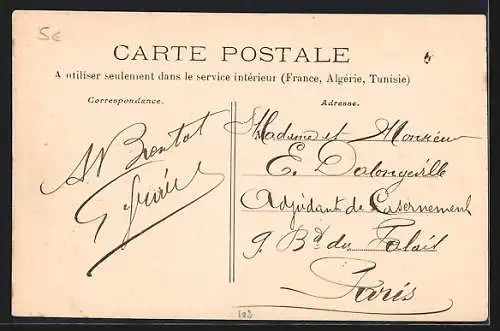 5€
CARTE POSTALE
A utiliser seulement dans le service intérieur (France, Algérie, Tunisie)
Correspondance.
Adresse.
Madame et Monsieur
E. Dalongeville
Adjudant de Casernement
9. Bd du Palais
Paris